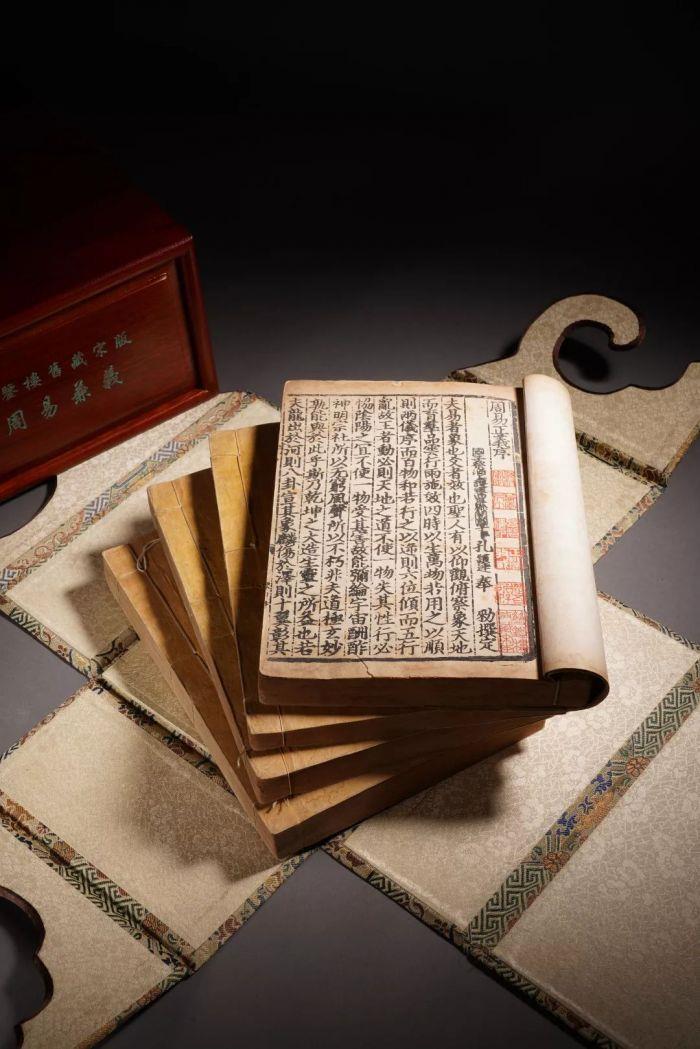 樓舊藏宋版
周易兼義
周易正義序
孔穎達奉 勑撰定
夫易者象也爻者效也聖人有以仰觀俯察象天地
而育羣品雲行雨施效四時以生萬物若用之以順
則兩儀序而百物和若行之以逆則六位傾而五行
亂故王者動必則天地之道不使一物失其性行必
恊陰陽之宜不使一物受其害故能彌綸宇宙酬酢
神明宗社所以无窮風聲所以不朽非夫道極玄妙
孰能與於此乎斯乃乾坤之大造生靈之所益也若
夫龍出於河則八卦宣其象麟傷於澤則十翼彰其